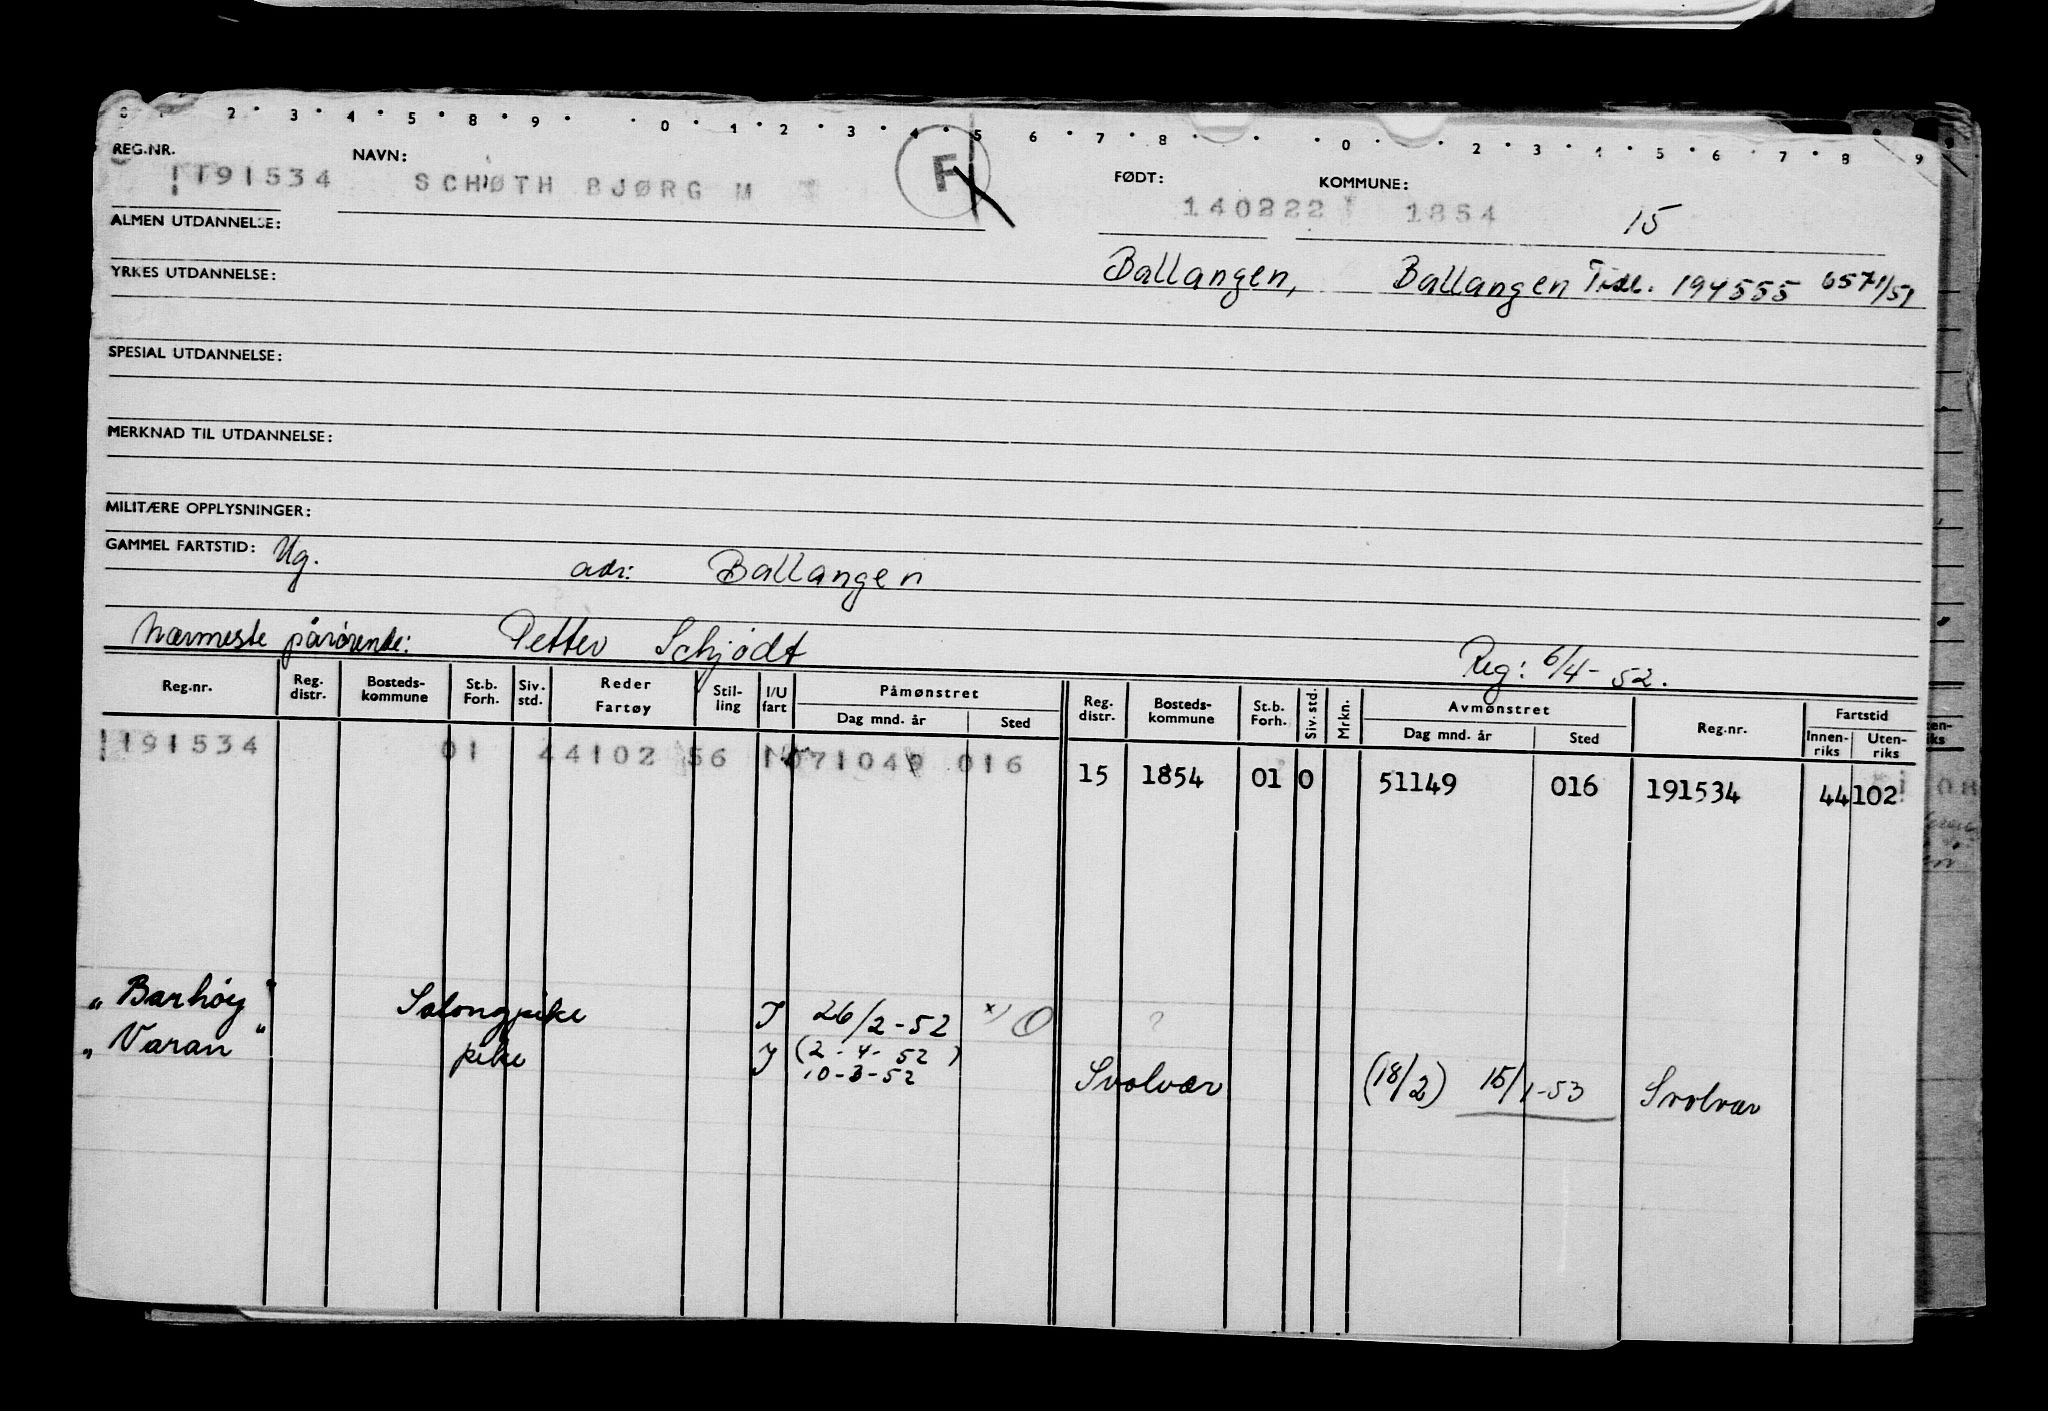 2 3 4 5 8 9 0 1 2 3 4 5 6 7 8 0 2 3 4 5 6 7 8 9
REG.NR. NAVN: FØDT: KOMMUNE:
191534 SCHØTH BJØRG M F 140222 1854 15
ALMEN UTDANNELSE:
YRKES UTDANNELSE: Ballangen, Ballangen Tidl. 194555 6571/51
SPESIAL UTDANNELSE:
MERKNAD TIL UTDANNELSE:
MILITÆRE OPPLYSNINGER:
GAMMEL FARTSTID: Ug. adr: Ballangen
Nærmeste pårørende: Petter Schjødt Reg: 6/4-52.
Reg.nr. Reg. distr. Bosteds-kommune St.b. Forh. Siv. std. Reder Fartøy Stil-ling I/U fart Påmønstret Reg. distr. Bosteds-kommune St.b. Forh. Siv. std. Mrkn. Avmønstret Reg.nr. Fartstid
Dag mnd. år Sted Dag mnd. år Sted Innen-riks Uten-riks
191534 01 44102 56 1071049 016 15 1854 01 0 51149 016 191534 44102
"Barhøy" Salongpike I 26/2-52 x) O ?
"Varan" pike I (2-4-52) 10-3-52 Svolvær (18/2) 15/1-53 Svolvær